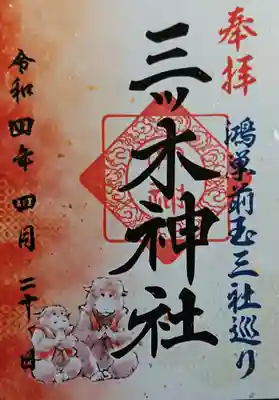 奉拝
鴻巣前玉三社巡り
三ッ木神社
令和四年 四月 二十 日